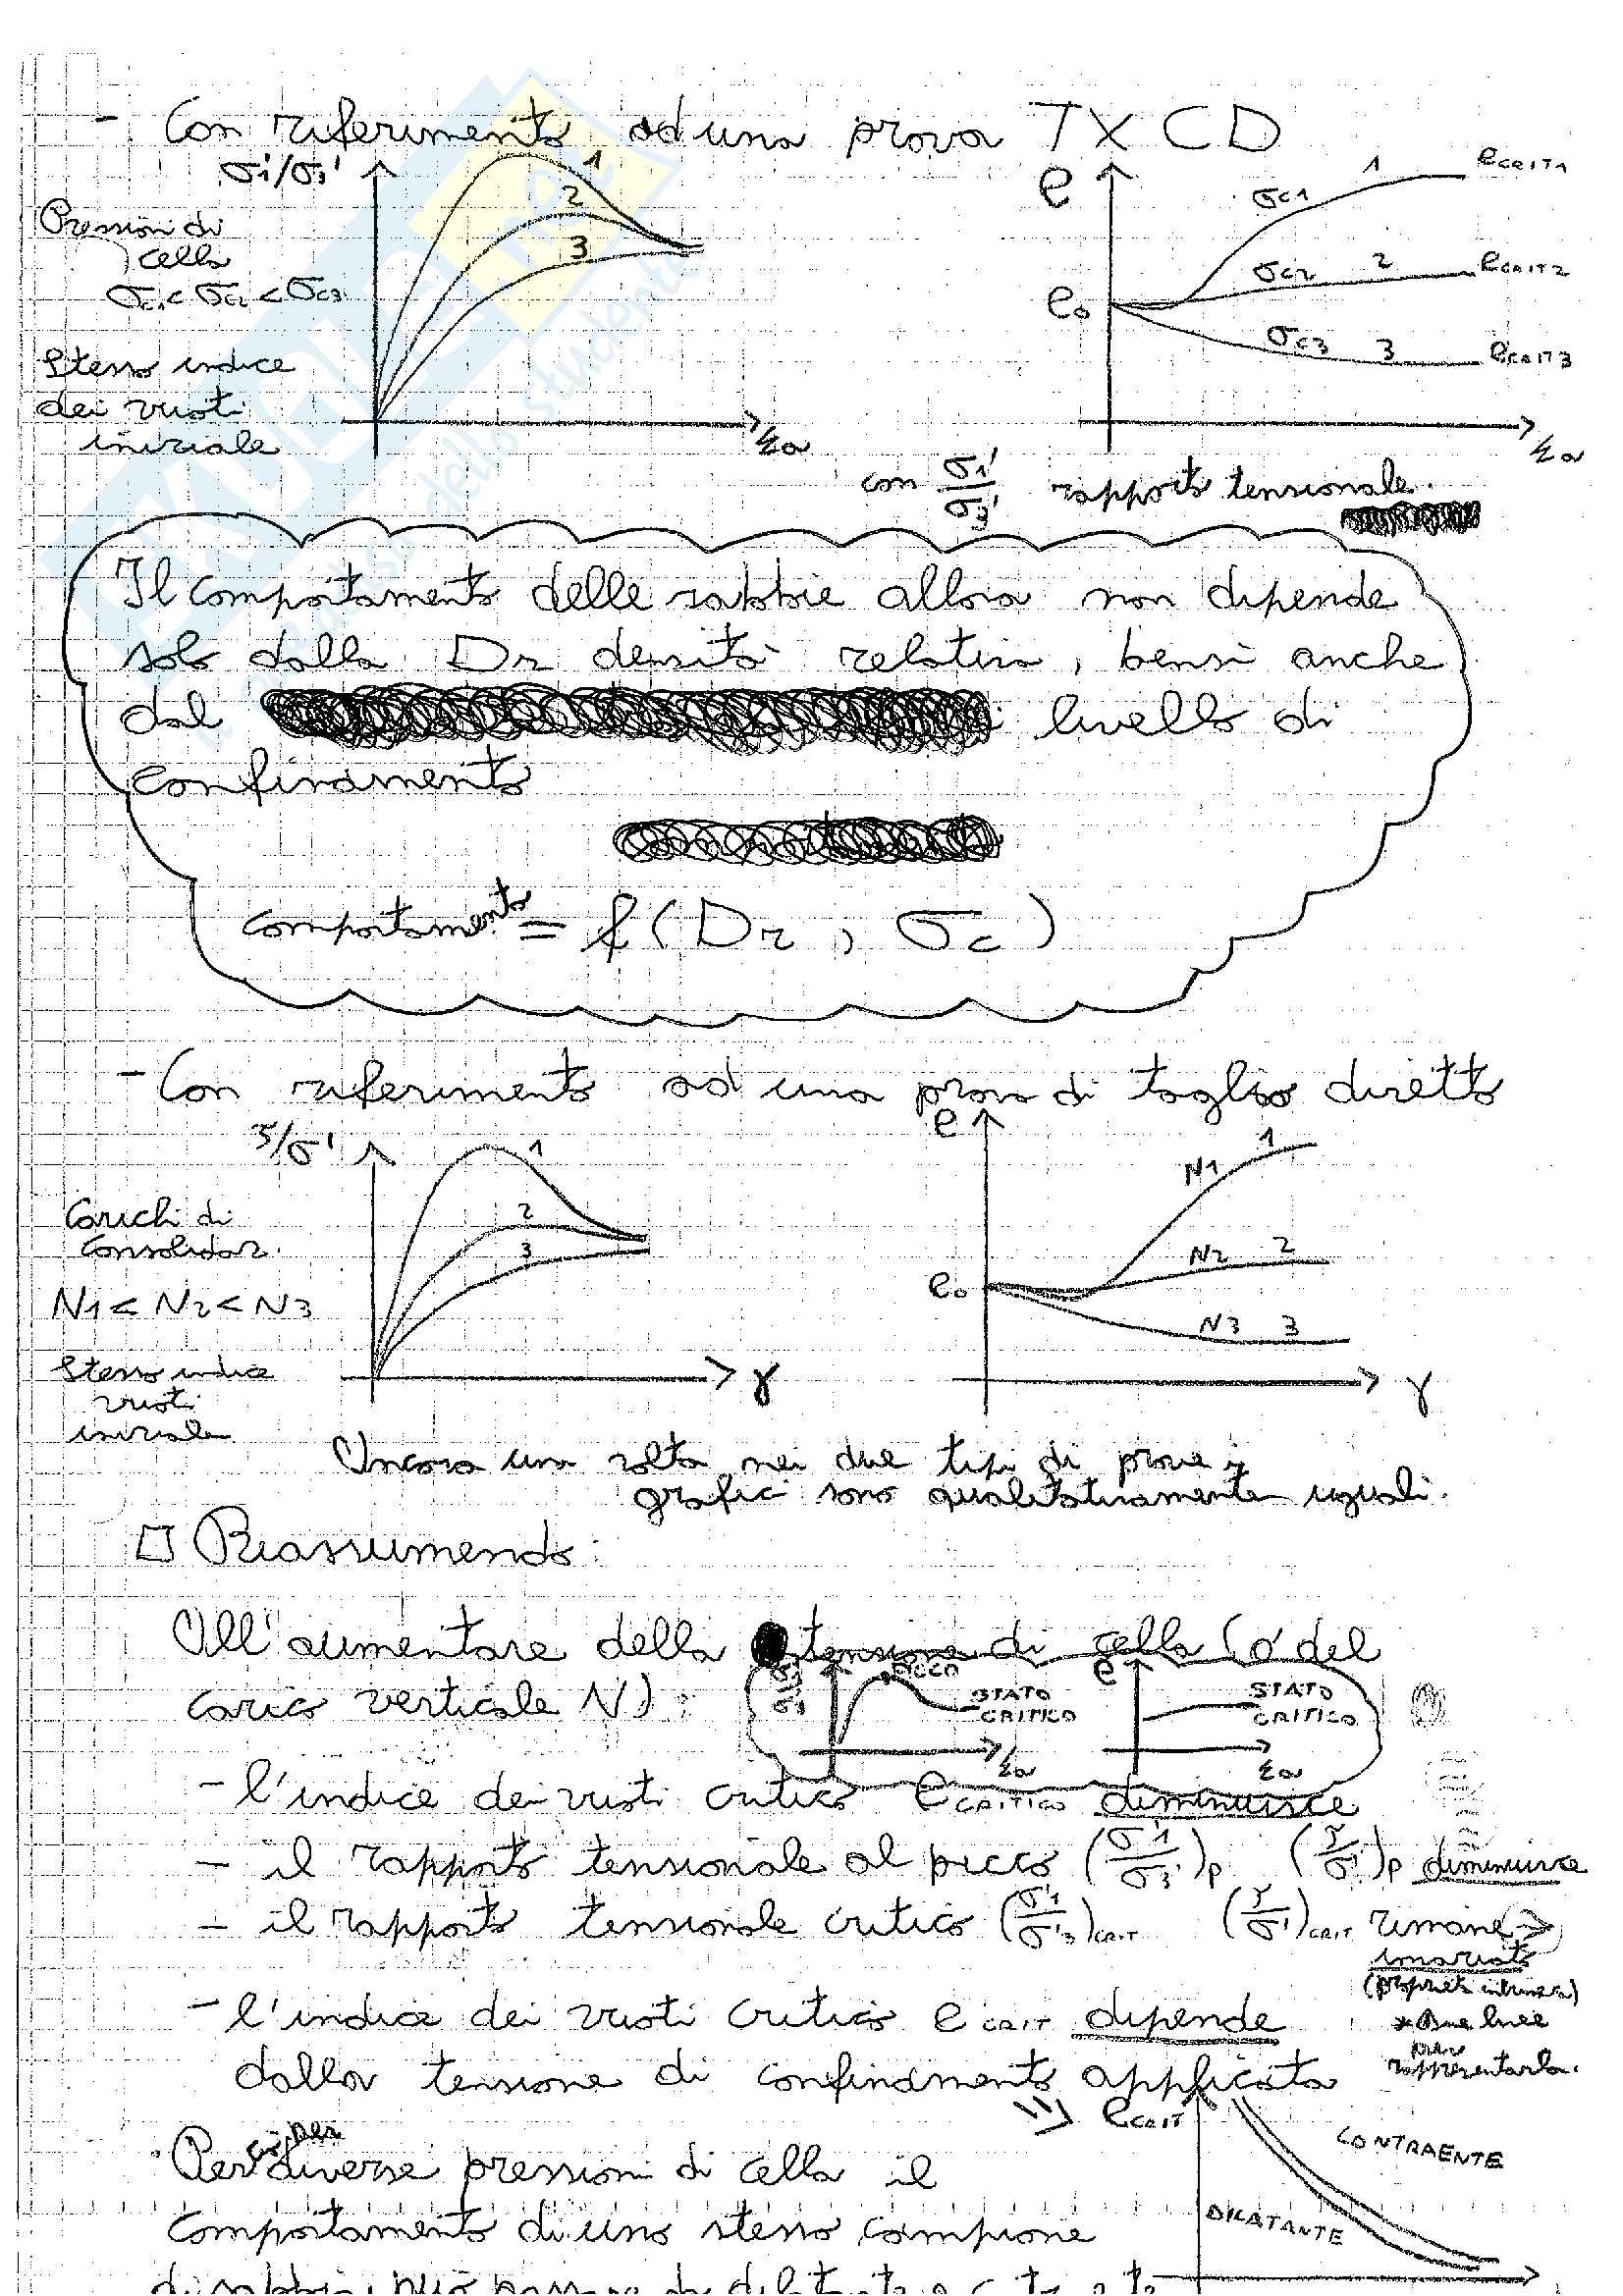 - Con riferimento ad una prova TX CD
σ1'/σ3'
1
2
3
Pressioni di
cella
σc1 < σc2 < σc3
Stesso indice
dei vuoti
iniziale
εa
e
σc1
1
eCRIT1
σc2
2
eCRIT2
e0
σc3
3
eCRIT3
εa
con σ1'/σ3' rapporto tensionale.
Il comportamento delle sabbie allora non dipende
solo dalla Dr densità relativa, bensì anche
dal livello di
confinamento
comportamento = f(Dr, σc)
- Con riferimento ad una prova di taglio diretto
τ/σ'
1
2
3
Carichi di
consolidaz.
N1 < N2 < N3
Stesso indice
vuoti
iniziale
γ
e
N1
1
N2
2
e0
N3
3
γ
Ancora una volta nei due tipi di prove i
grafici sono qualitativamente uguali.
Riassumendo:
All'aumentare della tensione di cella (o del
carico verticale N):
σ1'/σ3'
PICCO
STATO
CRITICO
εa
e
STATO
CRITICO
εa
- l'indice dei vuoti critico eCRITICO diminuisce
- il rapporto tensionale al picco (σ1'/σ3')p (τ/σ')p diminuisce
- il rapporto tensionale critico (σ1'/σ3')CRIT (τ/σ')CRIT rimane
invariato
(proprietà intrinseca)
* due linee
per
rappresentarla.
- l'indice dei vuoti critico eCRIT dipende
dalla tensione di confinamento applicata
eCRIT
CONTRAENTE
DILATANTE
Per diverse pressioni di cella il
comportamento di uno stesso campione
di sabbia può passare da dilatante a